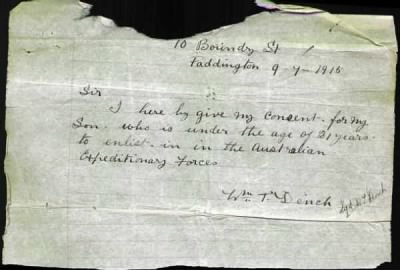 10 Boundy St
Paddington 9-7-1915
Sir
I here by give my consent. for my
Son. who is under the age of 21 years.
to enlist. in in the Australian
Expeditionary Forces
Wm Tr Dench